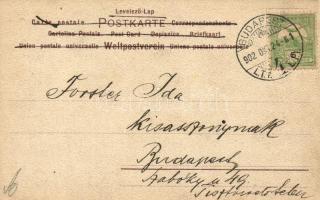 Levelező-Lap
Carte postale POSTKARTE Correspondenzkarte
Cartolina Postale Post Card Dopisnice Briefkaart
Union postale universelle Weltpostverein Union postale universelle
BUDAPEST
902
Forster Ida
kisasszonynak
Budapest
Szabóky u 49